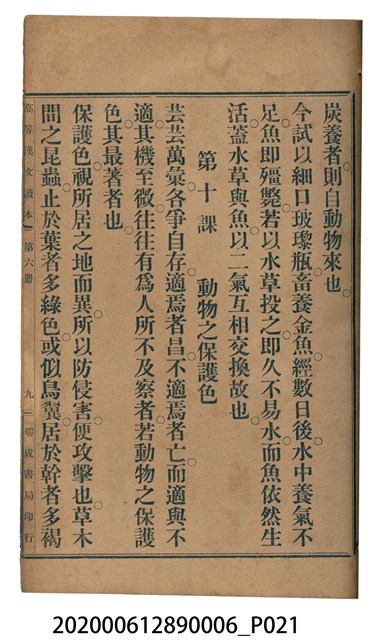 炭養者。則自動物來也。
今試以細口玻瓈瓶。畜養金魚。經數日後。水中養氣不
足。魚即殭斃。若以水草投之。即久不易水。而魚依然生
活。蓋水草與魚。以二氣互相交換故也。
第十課 動物之保護色
芸芸萬彙。各爭自存。適焉者昌。不適焉者亡。而適與不
適。其機至微。往往有爲人所不及察者。若動物之保護
色。其最著者也。
保護色。視所居之地而異。所以防侵害。便攻擊也。草木
間之昆蟲。止於葉者多綠色。或似鳥糞。居於幹者多褐
高等漢文讀本 第六册 九 瑞成書局印行
202000612890006_P021